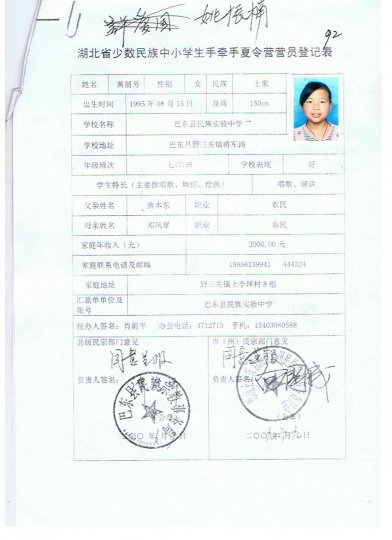 姚振楠
92
湖北省少数民族中小学生手牵手夏令营营员登记表
姓名 黄丽芳 性别 女 民族 土家
出生时间 1995年08月15日 身高 150cm
学校名称 巴东县民族实验中学
学校地址 巴东县野三关镇将军路
年级班次 七(7)班 学校表现 好
学生特长(主要指唱歌、舞蹈、绘画) 唱歌、演讲
父亲姓名 黄本东 职业 农民
母亲姓名 邓凤翠 职业 农民
家庭年收入(元) 2000.00元
家庭联系电话及邮编 15956139941 444324
家庭地址 野三关镇上李坪村8组
汇款单单位及账号 巴东县民族实验中学
经办人签名:肖前平 办公电话:4712713 手机:13403080588
县级民宗部门意见 市(州)民宗部门意见
同意呈报
负责人签名: 负责人签名:
巴东县民族宗教事务局